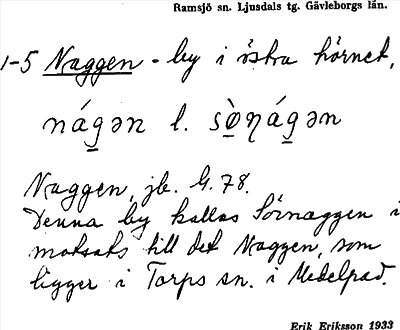 Ramsjö sn. Ljusdals tg. Gävleborgs län.
1-5 Naggen - by i östra hörnet,
nág̱ən l. sö̱̀ŋág̱ən
Naggen, jb. G. 78.
Denna by kallas Sörnaggen i
motsats till det Naggen, som
ligger i Torps sn. i Medelpad.
Erik Eriksson 1933